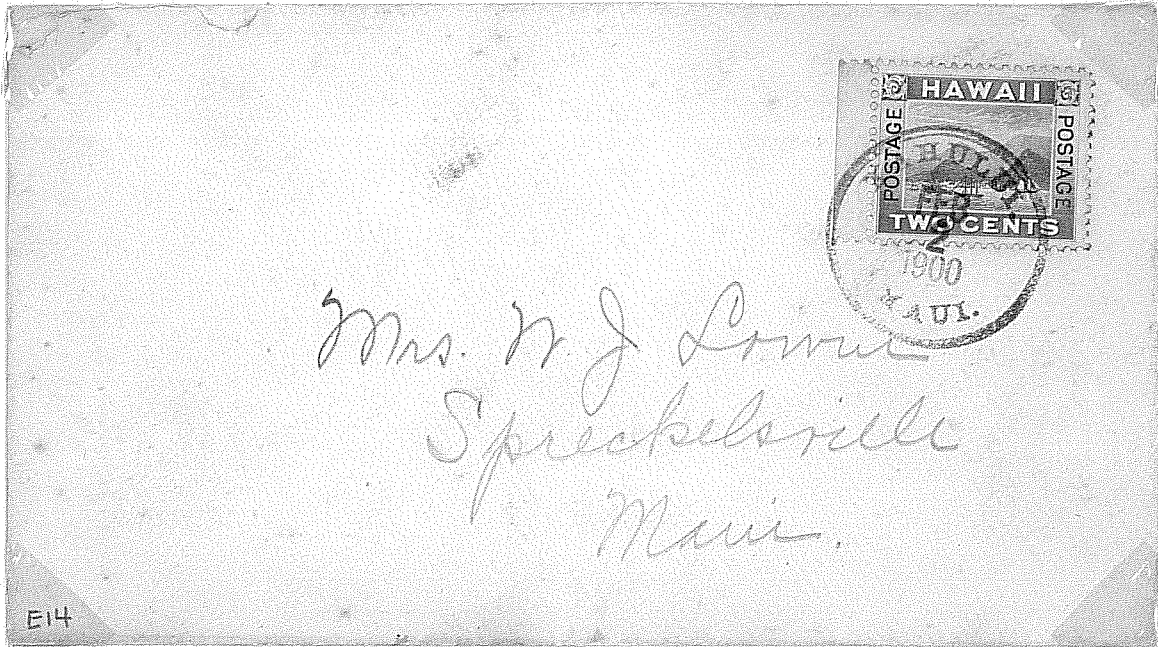 HAWAII
POSTAGE
POSTAGE
TWO CENTS
KAHULUI.
FEB
2
1900
MAUI.
Mrs. W. J Lowrie
Spreckelsville
Maui.
E14